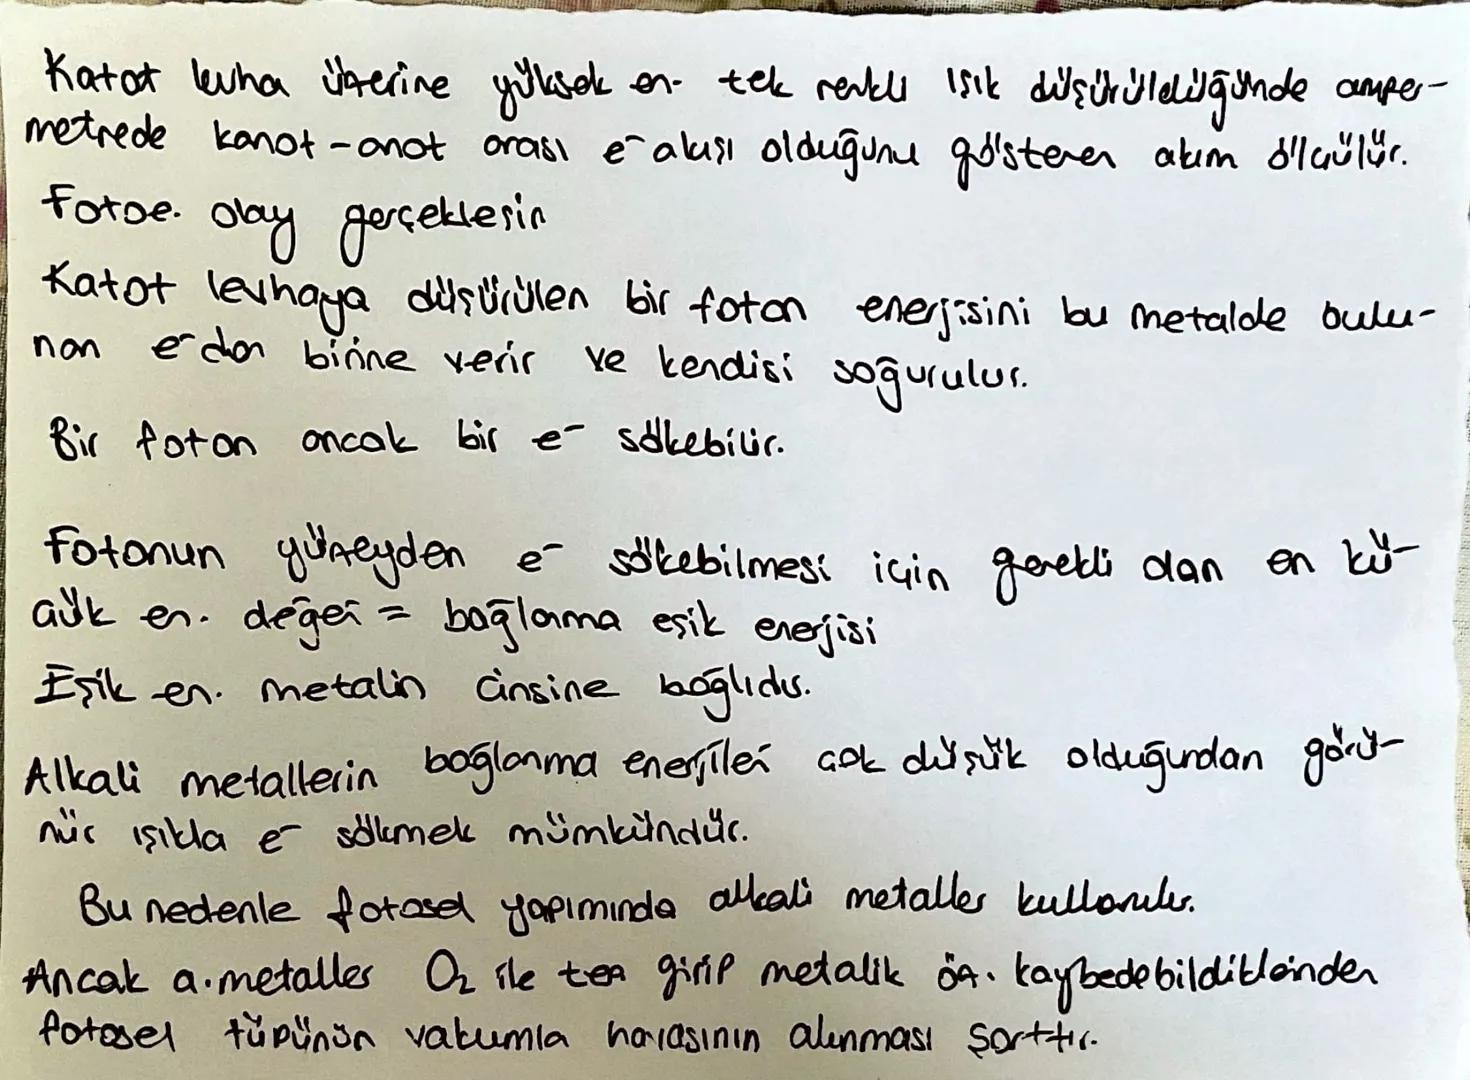 Katot levha üzerine yüksek en. tek renkli ışık düşürüldüğünde amper-
metrede kanot-anot arası e⁻ akışı olduğunu gösteren akım ölçülür.
Fotoe. olay gerçekleşir
Katot levhaya düşürülen bir foton enerjisini bu metalde bulu-
nan e⁻dan birine verir ve kendisi soğurulur.
Bir foton ancak bir e⁻ sökebilir.
Fotonun yüzeyden e⁻ sökebilmesi için gerekli olan en kü-
çük en. değeri = bağlanma eşik enerjisi
Eşik en. metalin cinsine bağlıdır.
Alkali metallerin bağlanma enerjileri çok düşük olduğundan görü-
nür ışıkla e⁻ sökmek mümkündür.
Bu nedenle fotosel yapımında alkali metaller kullanılır.
Ancak a.metaller O₂ ile tea girip metalik öz. kaybedebildiklerinden
fotosel tüpünün vakumla havasının alınması şarttır.